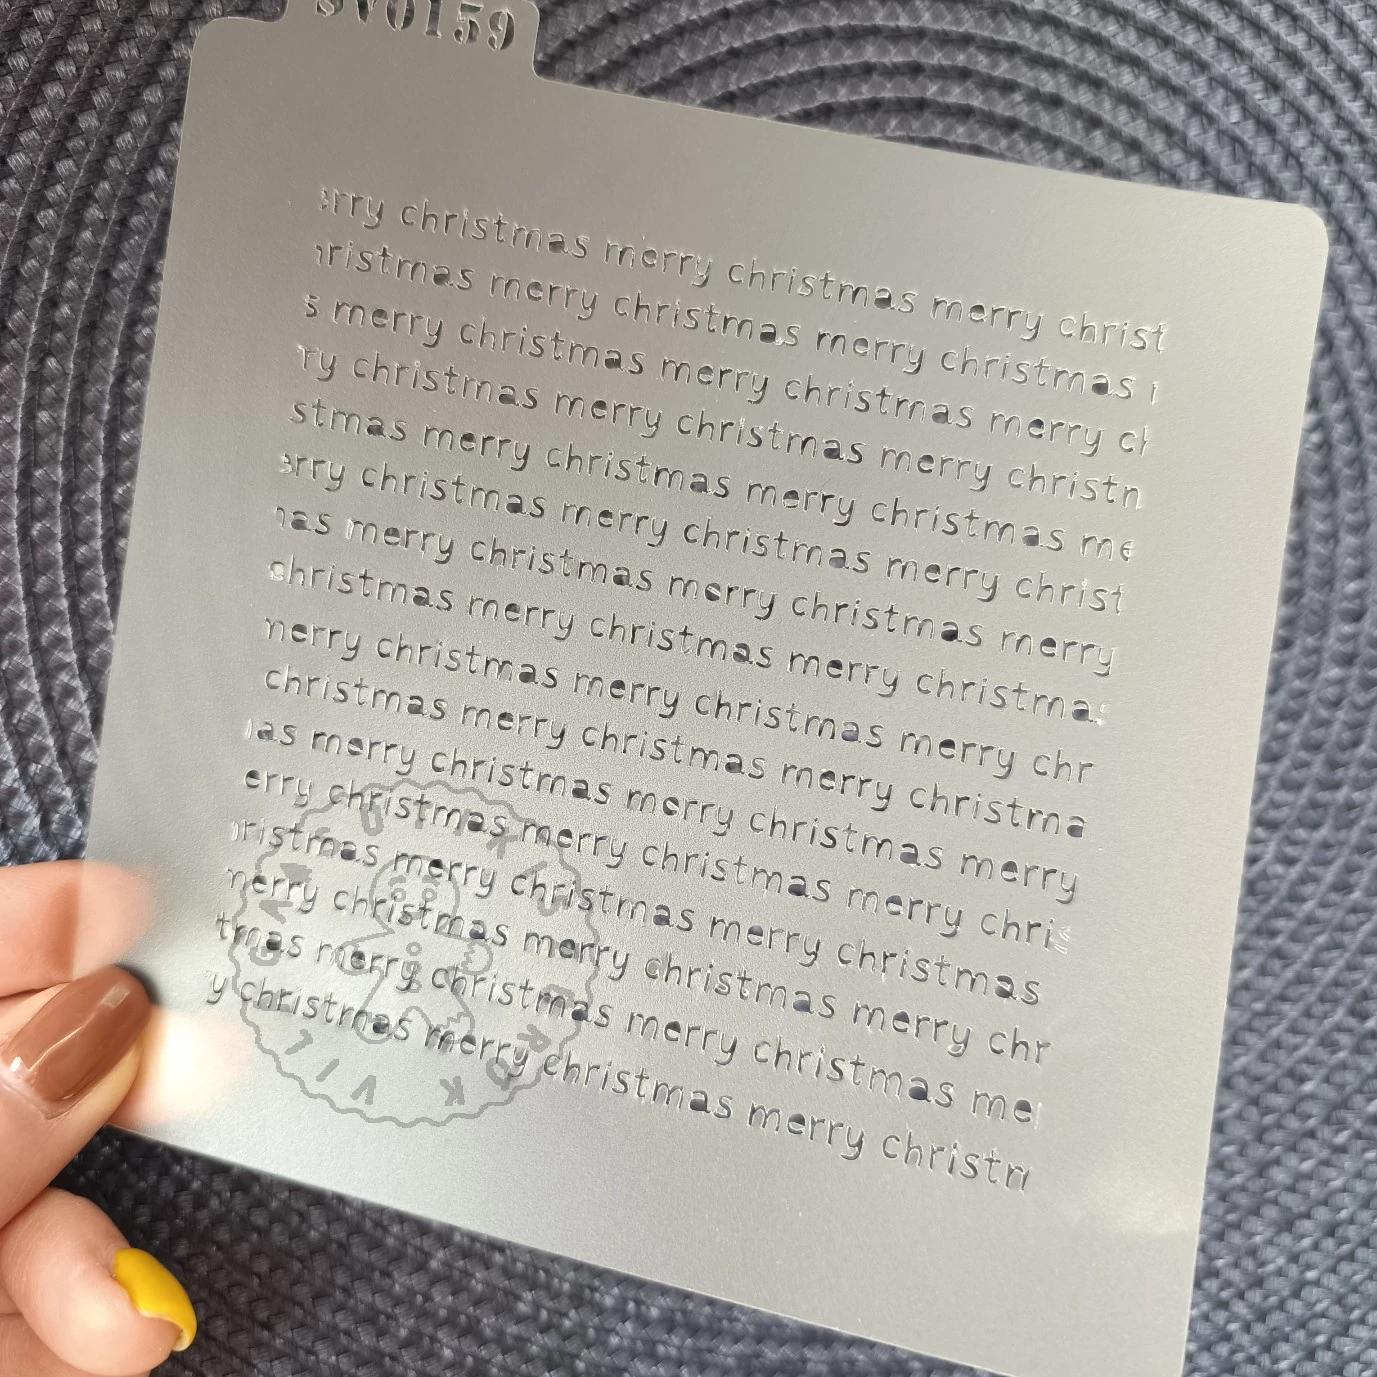 SV0159
erry christmas merry christmas merry christ
hristmas merry christmas merry christmas
s merry christmas merry christmas merry ch
ry christmas merry christmas merry christn
stmas merry christmas merry christmas me
erry christmas merry christmas merry christ
nas merry christmas merry christmas merry
christmas merry christmas merry christmas
nerry christmas merry christmas merry chr
christmas merry christmas merry christma
as merry christmas merry christmas merry
erry christmas merry christmas merry chris
ristmas merry christmas merry christmas
merry christmas merry christmas merry chr
tmas merry christmas merry christmas me
y christmas merry christmas merry christn